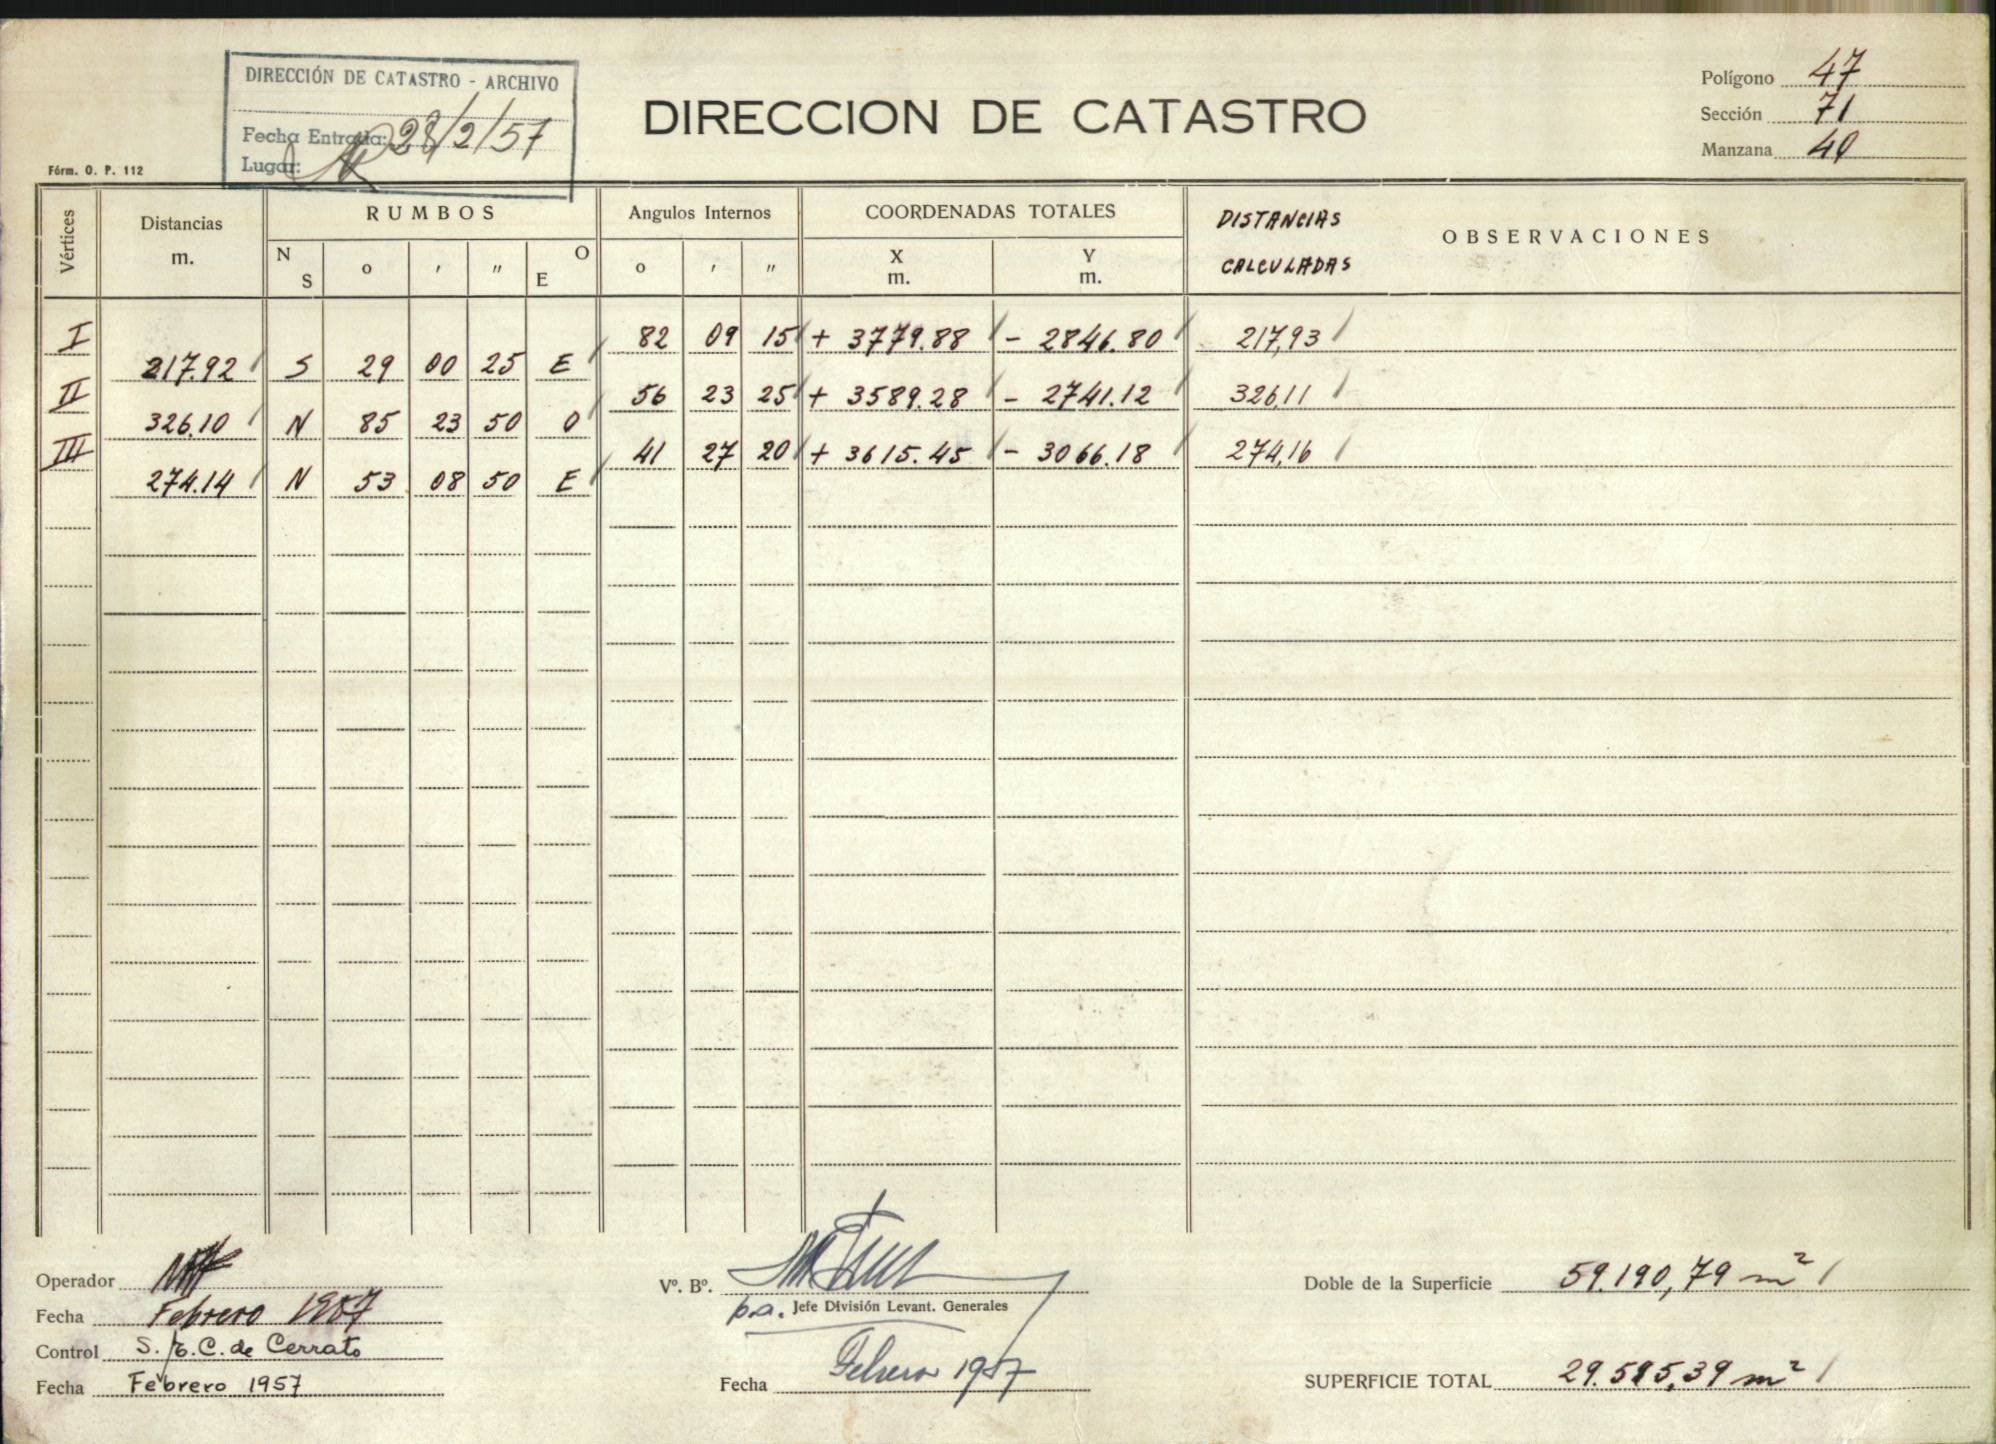 DIRECCIÓN DE CATASTRO - ARCHIVO
Fecha Entrada: 28/2/57
Lugar:
DIRECCION DE CATASTRO
Polígono 47
Sección 71
Manzana 40
Fórm. O. P. 112
Vértices Distancias m. RUMBOS Angulos Internos COORDENADAS TOTALES DISTANCIAS CALCULADAS OBSERVACIONES
N S o ' " O E o ' " X m. Y m.
I 82 09 15 + 3779.88 - 2846.80 217,93
217.92 S 29 00 25 E
II 56 23 25 + 3589.28 - 2741.12 326,11
326.10 N 85 23 50 O
III 41 27 20 + 3615.45 - 3066.18 274,16
274.14 N 53 08 50 E
Operador
Fecha Febrero 1957
Control S. E. C. de Cerrato
Fecha Febrero 1957
Vº. Bº.
p.a. Jefe División Levant. Generales
Fecha Febrero 1957
Doble de la Superficie 59.190,79 m²
SUPERFICIE TOTAL 29.595,39 m²